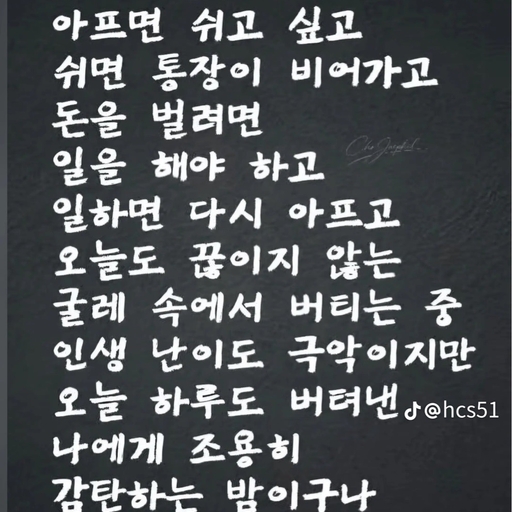 아프면 쉬고 싶고
쉬면 통장이 비어가고
돈을 벌려면
일을 해야 하고
일하면 다시 아프고
오늘도 끊이지 않는
굴레 속에서 버티는 중
인생 난이도 극악이지만
오늘 하루도 버텨낸
@hcs51
나에게 조용히
감탄하는 밤이구나